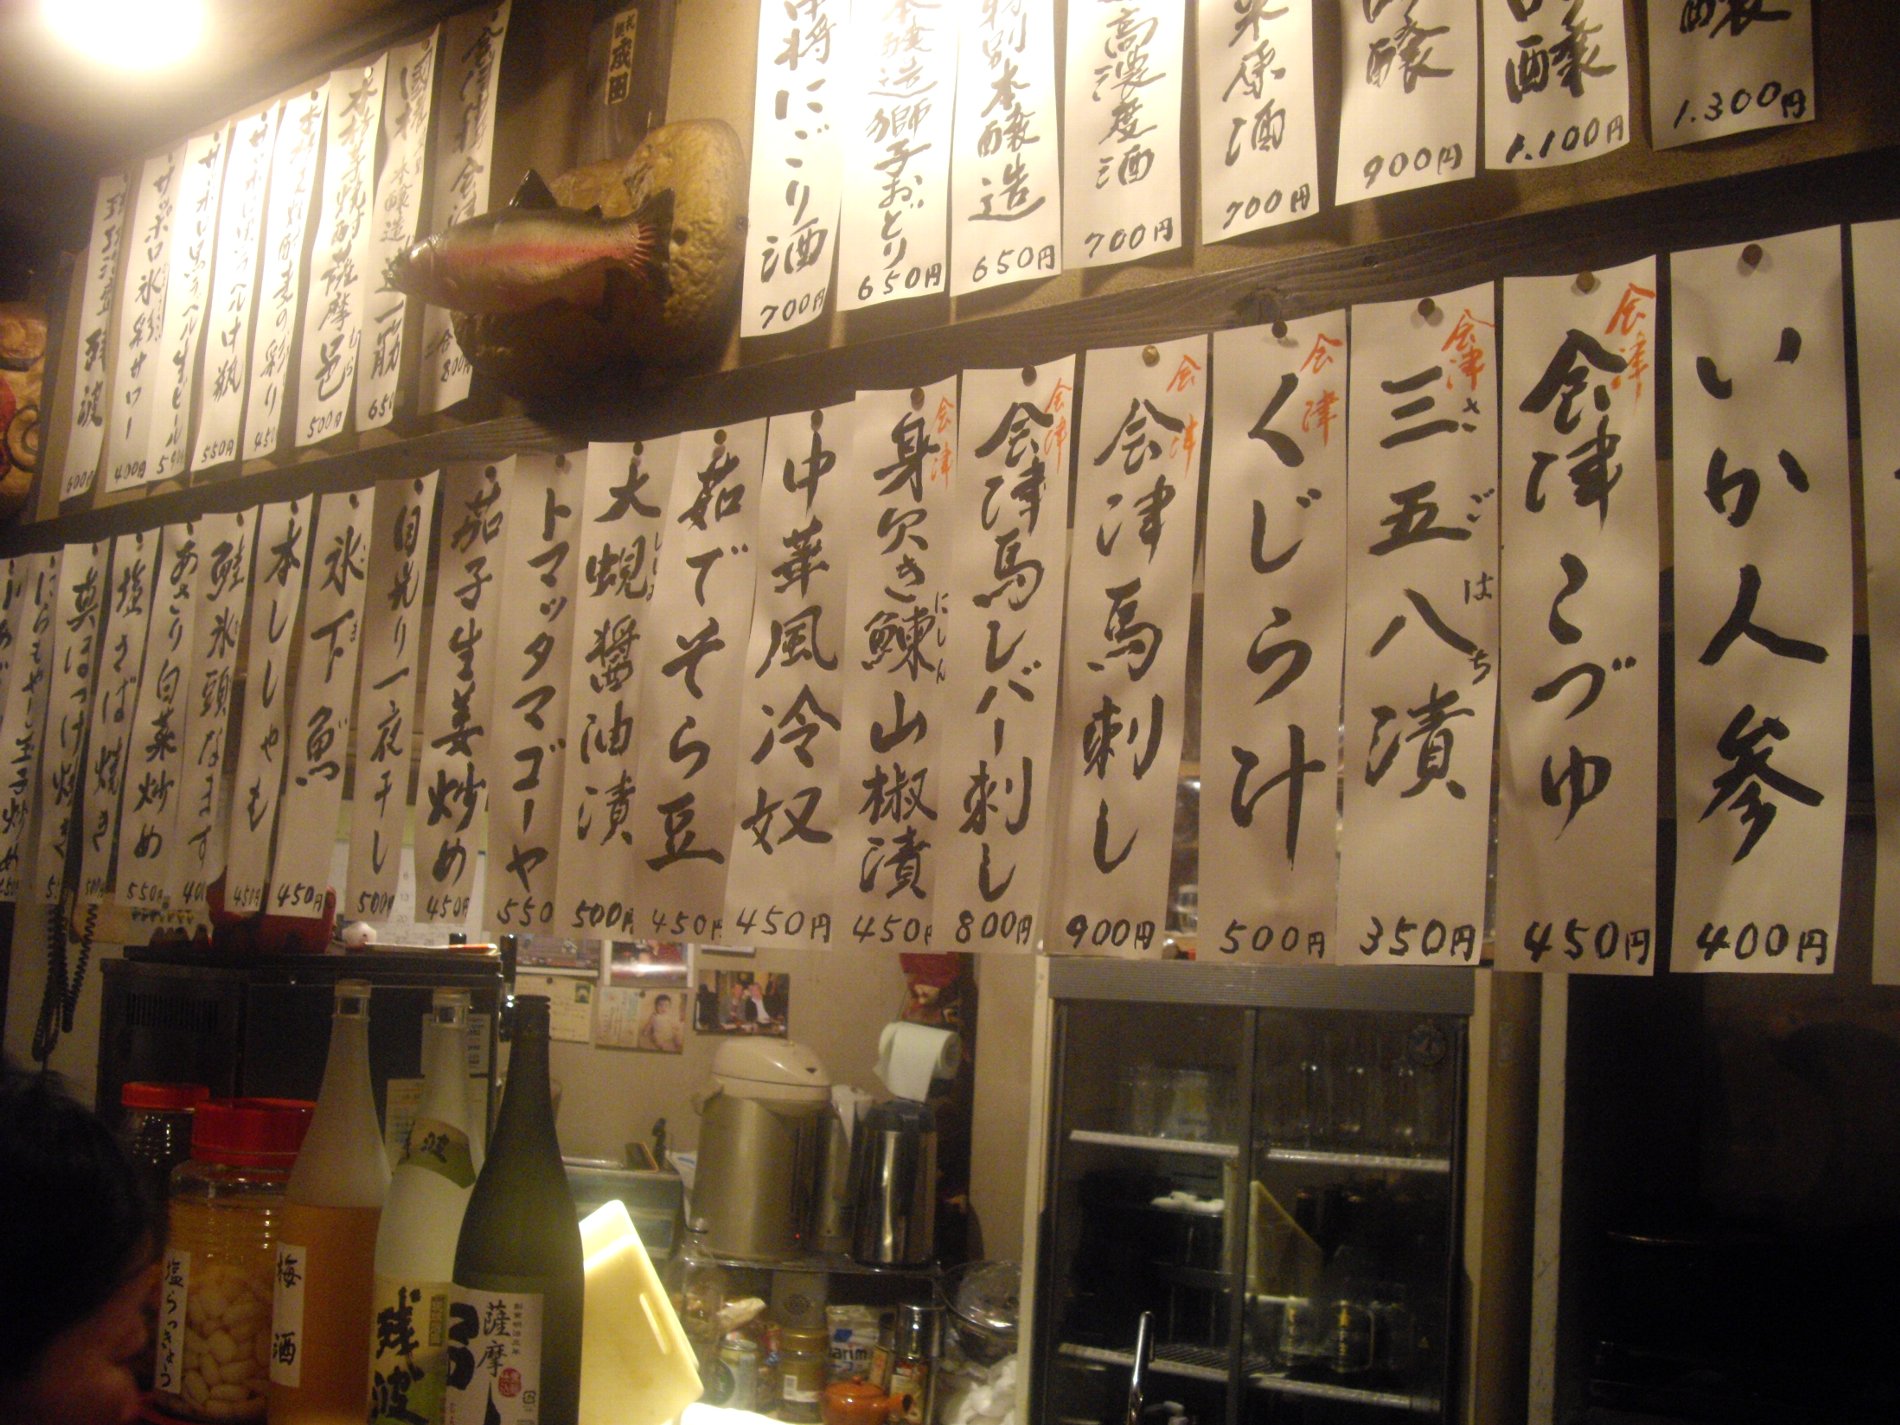 いか人参
400円
会津
会津こづゆ
450円
会津
三五八漬
さごはち
350円
会津
くじら汁
500円
会津
会津馬刺し
900円
会津
会津馬レバー刺し
800円
会津
身欠き鰊山椒漬
にしん
450円
中華風冷奴
450円
茹でそら豆
450円
大蜆醤油漬
500円
トマッタマゴーヤ
550
茄子生姜炒め
450円
目光り一夜干し
500円
氷下魚
450円
本ししゃも
450円
鮭氷頭なます
400
あさり白菜炒め
550円
塩さば焼き
500円
真ほっけ焼き
醸
1.300円
醸
1.100円
醸
900円
米原酒
700円
高濃度酒
700円
特別本醸造
650円
本醸造獅子おどり
650円
中将にごり酒
700円
成田
本醸造
一筋
650
本格芋焼酎薩摩邑
むら
500円
450
550円
サッポロ黒ラベル生ビール
サッポロ氷彩サワー
400円
残波
600円
塩らっきょう
梅酒
残波
薩摩